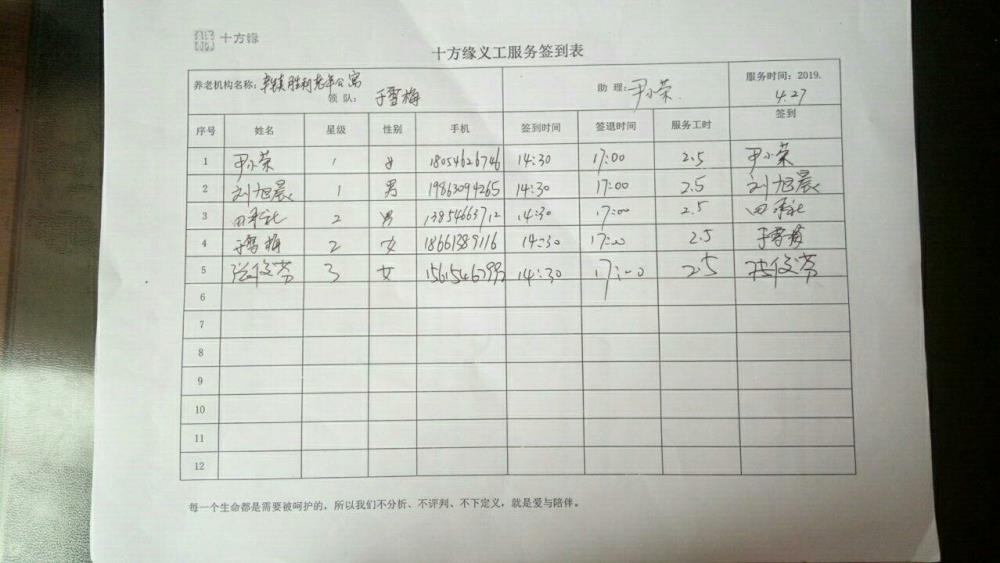 十方缘
十方缘义工服务签到表
养老机构名称：辛镇胜利老年公寓 助 理：尹小荣 服务时间：2019.
领 队：于雪梅 4.27
序号 姓名 星级 性别 手机 签到时间 签退时间 服务工时 签到
1 尹小荣 1 女 18054626746 14:30 17:00 2.5 尹小荣
2 刘旭晨 1 男 19863094265 14:30 17:00 2.5 刘旭晨
3 田 2 男 13854663712 14:30 17:00 2.5 田
4 于雪梅 2 女 18661389116 14:30 17:00 2.5 于雪梅
5 3 女 14:30 17:00 2.5
6
7
8
9
10
11
12
每一个生命都是需要被呵护的，所以我们不分析、不评判、不下定义，就是爱与陪伴。